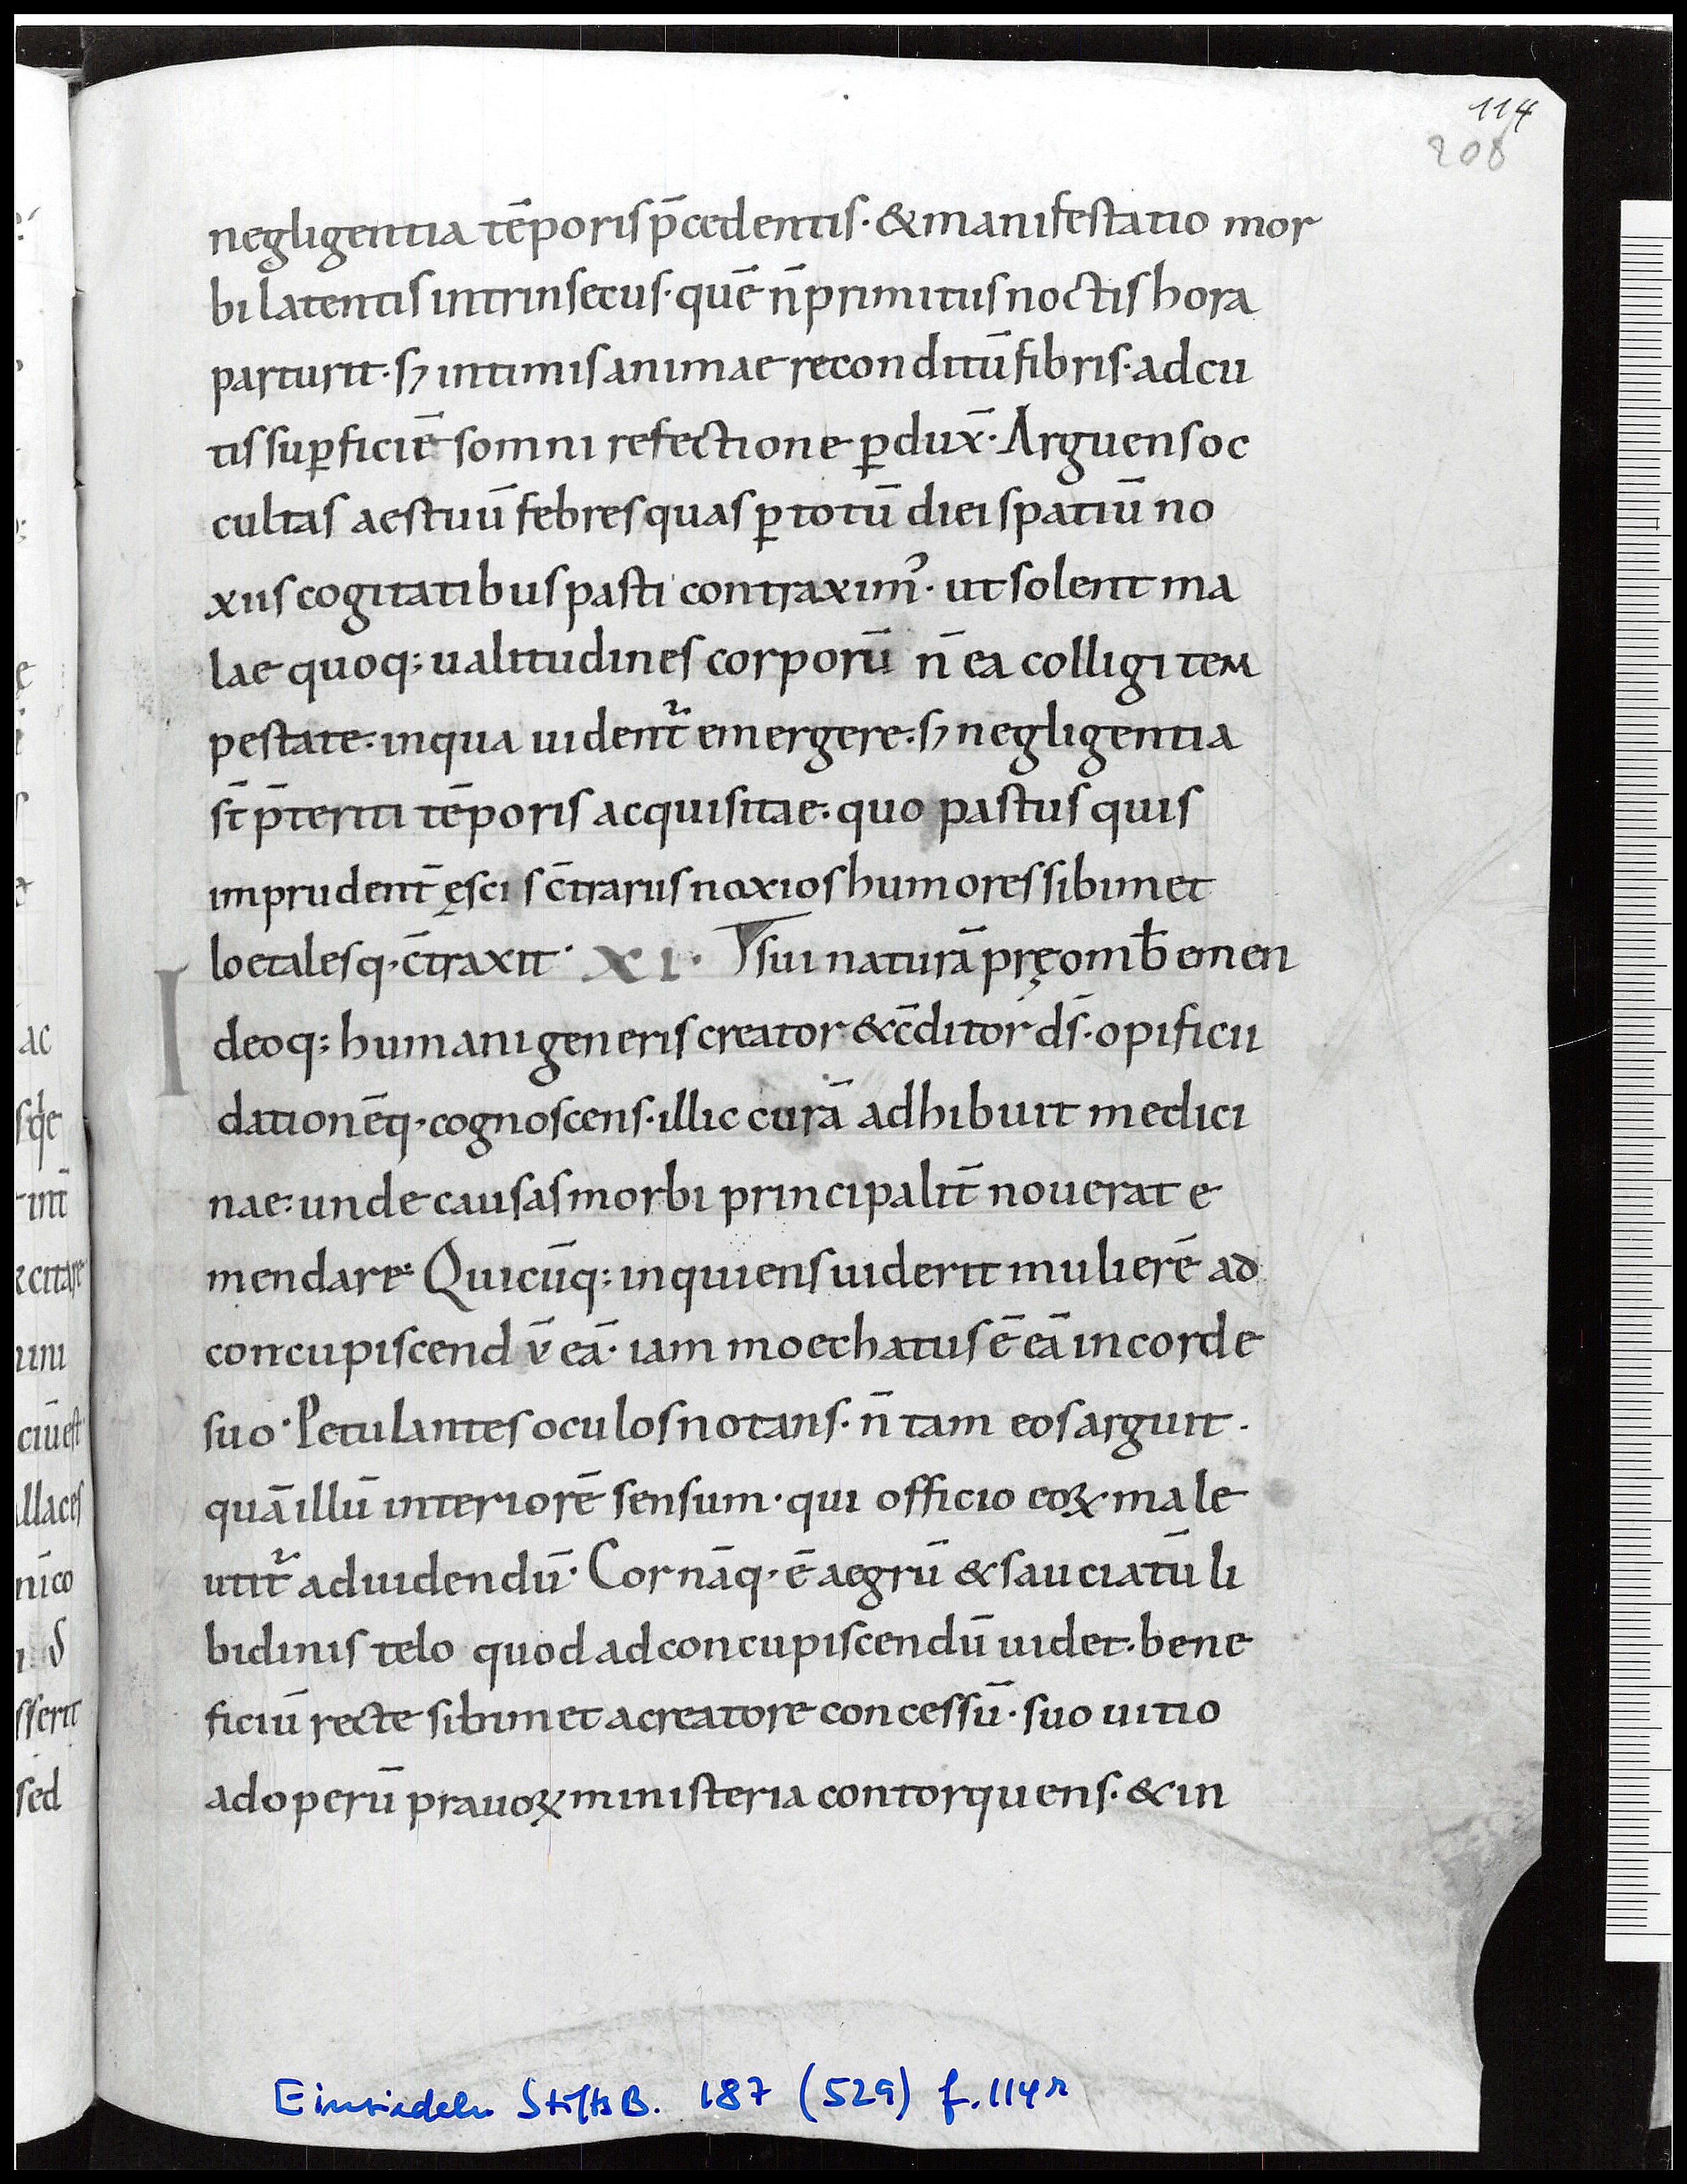 114
208
negligentia tēporis p̄cedentis · & manifestatio mor
bi latentis intrinsecus · quē n̄ primitus noctis hora
parturit · sꝫ intimis animae reconditū fibris · ad cu
tis suꝑficiē somni refectione ꝑdux̄ · Arguens oc
cultas aestuū febres quas ꝑ totū diei spatiū no
xiis cogitatibus pasti contraximꝰ · ut solent ma
lae quoq; ualitudines corporū n̄ ea colligi tem
pestate · in qua uident᷑ emergere · sꝫ negligentia
st̄ p̄teriti tēporis acquisitae · quo pastus quis
imprudent̄ ęscis c̄trariis noxios humores sibimet
loetalesq · c̄traxit · XI · sui naturā prę omb̄ emen
Ideoq; humani generis creator & c̄ditor ds̄ · opificii
dationēq · cognoscens · illic curā adhibuit medici
nae · unde causas morbi principalit̄ nouerat e
mendare · Quicūq; inquiens uiderit mulierē ad
concupiscend v̄ eā · iam moechatus ē eā in corde
suo · Petulantes oculos notans · n̄ tam eos arguit ·
quā illū interiorē sensum · qui officio eoꝝ · male
utit᷑ ad uidendū · Cor nāq · ē aegrū & sauciatū li
bidinis telo quod ad concupiscendū uidet · bene
ficiū recte sibimet a creatore concessū · suo uitio
ad operū prauoꝝ ministeria contorquens · & in
ac
unt̄
ciūest
llaces
sserit
sed
Einsiedeln StiftsB. 187 (529) f. 114r